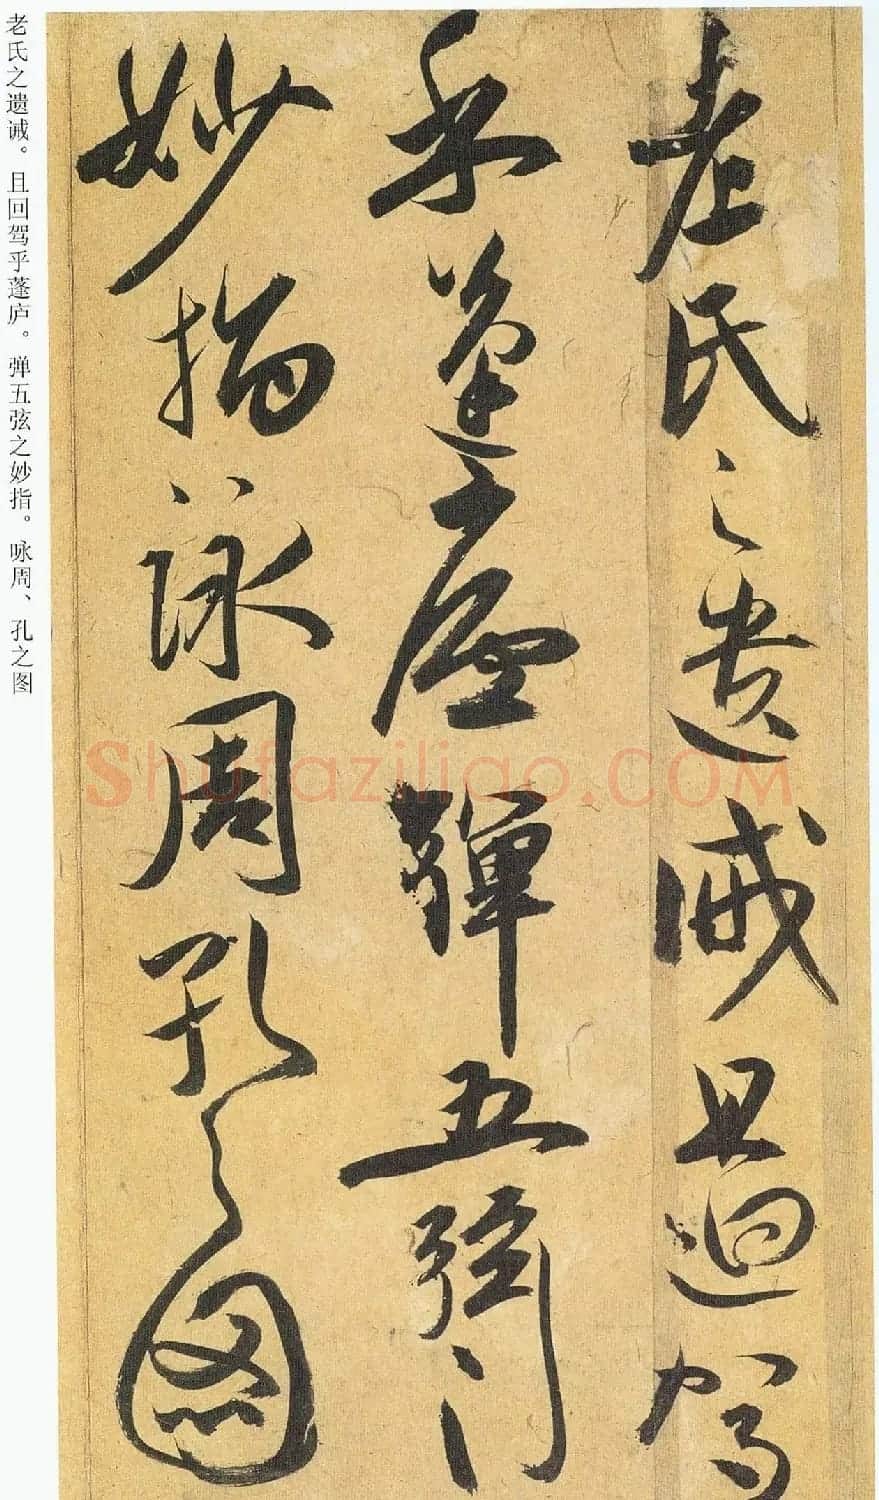 老氏之遺誡且迴駕
乎蓬廬彈五弦
妙指詠周孔之圖
老氏之遗诫。且回驾乎蓬庐。弹五弦之妙指。咏周、孔之图
Shufaziliao.COM